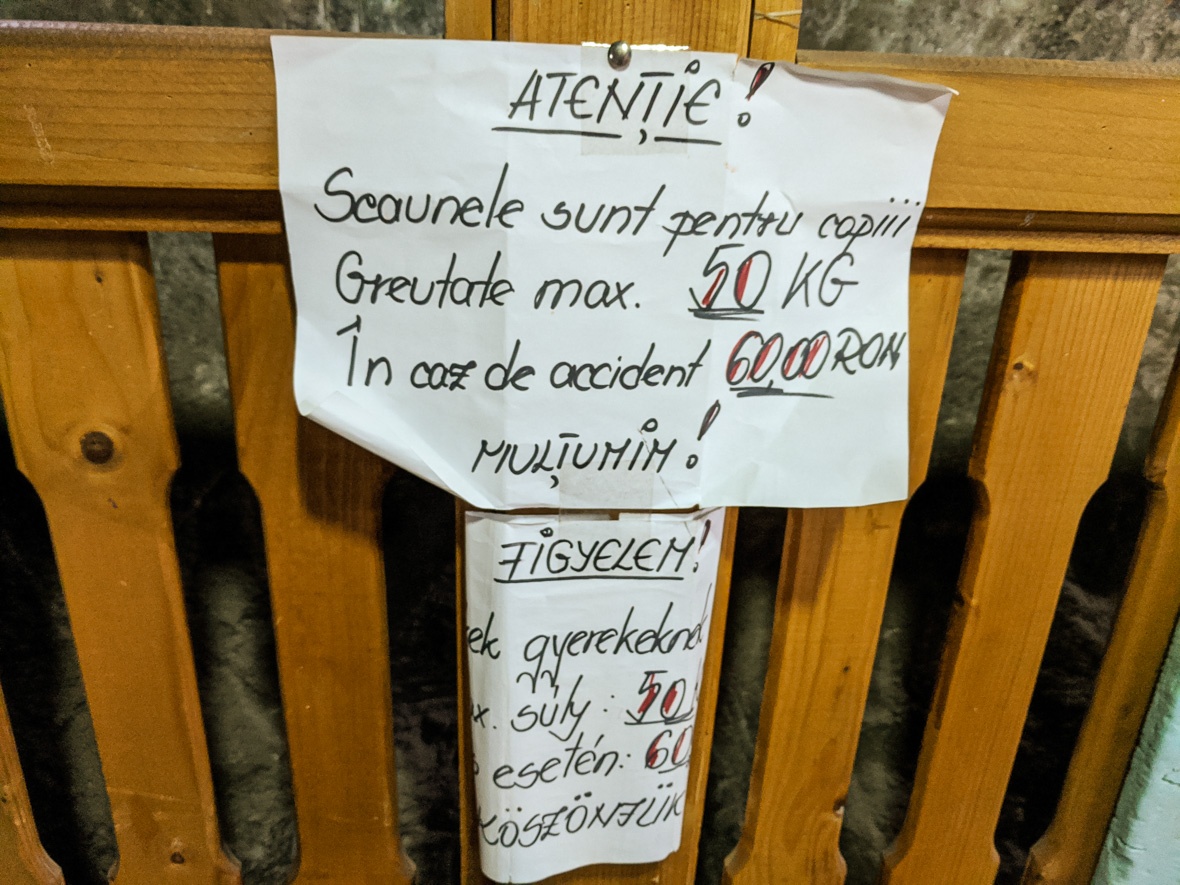 ATENȚIE!
Scaunele sunt pentru copiii
Greutate max. 50 KG
În caz de accident 60,00 RON
MULȚUMIM!
FIGYELEM!
ek gyerekeknek
x. súly: 50
esetén: 60,
KÖSZÖNJÜK